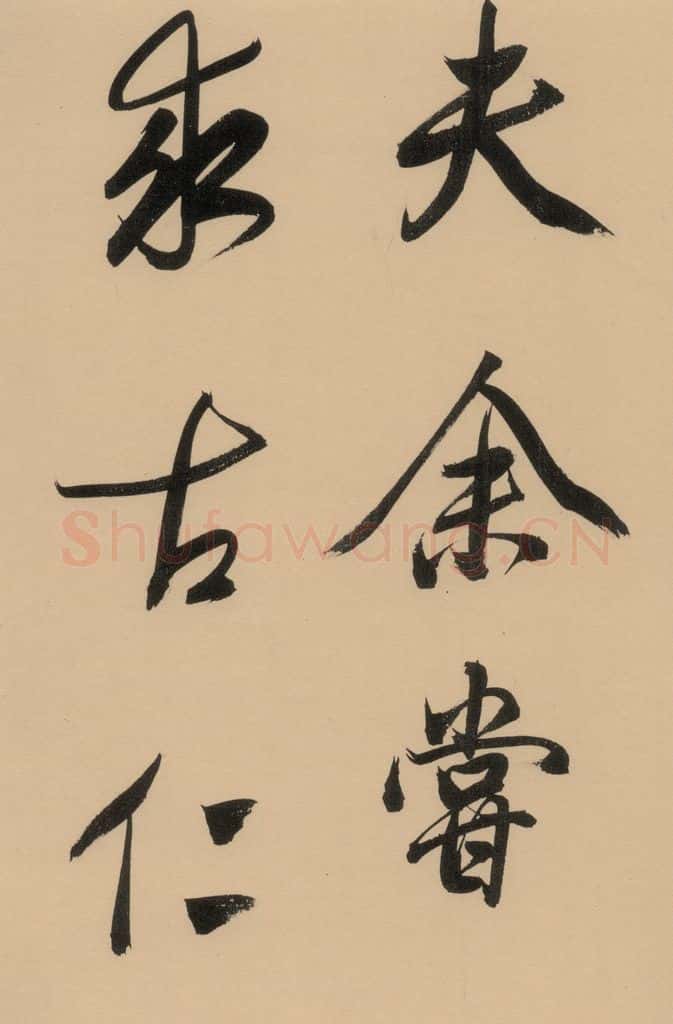 夫余嘗
求古仁
Shufawang.CN